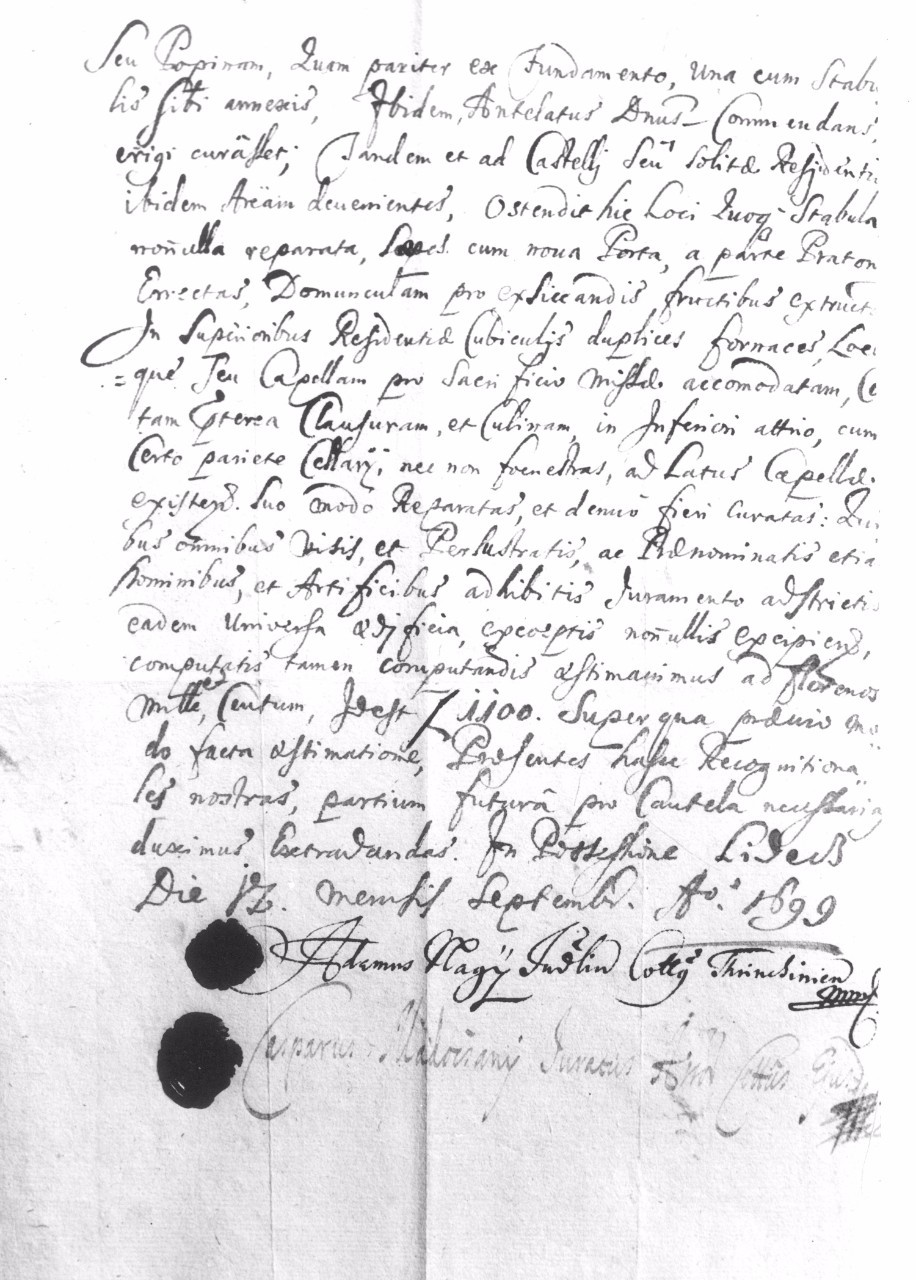 Seu Popinam, Quam pariter ex Fundamento, Una cum Stabu
lis sibi annexis, Ibidem, Antelatus Dnus Commendans,
erigi curâsset; Tandem et ad Castelly seu solitæ Residenti
ibidem Aream devenientes, Ostendit hic Loci Quoq Stabula
nonnulla reparata, Sepes cum noua Porta, a parte Praton
Errectas, Domunculam pro exsiccandis fructibus extruct
In Superioribus Residentiæ Cubiculis duplices fornaces, Loc
=que seu Capellam pro Sacrificio Missæ accomodatam, Ce
tam Pterea Clausuram, et Culinam, in Inferiori attrio, cum
Certo pariete Cellarÿ, nec non foenestras, ad Latus Capellæ
existen. Suo modo Reparatas, et denuò fieri curatas: Qui
bus omnibus Visis, et Perlustratis, ac Prænominatis etia
Hominibus, et Artificibus adhibitis Juramento adstrictis
eadem Universa ædificia, exceptis nonnullis excipien,
computatis tamen computandis æstimauimus ad florenos
Mille, Centum, Idest f 1100. Super qua præuio mo
do facta æstimatione, Præsentes hasce Recognitiona
les nostras, partium futurâ pro Cautela necessaria
duximus Extradandas. In Possessione Lideco
Die 12. Mensis Septembr. Ao. 1699
Adamus Nagÿ Judlium Cottus Thrinchinien
Casparus Juratus Cottus